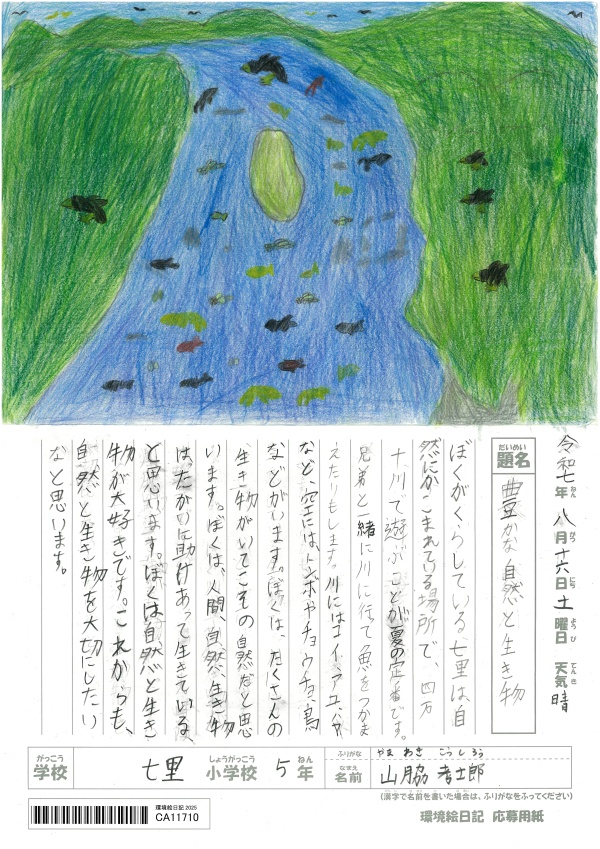 令和七年 八月十六日 土曜日 天気 晴
ねん がつ にち ようび てんき
だいめい
題名 豊かな自然と生き物
ぼくがくらしている七里は、自
然にかこまれている場所で、四万
十川で遊ぶことが夏の定番です。
兄弟と一緒に川に行って魚をつかま
えたりもします。川にはコイ、アユ、ハヤ
など、空には、トンボやチョウチョ、鳥
などがいます。ぼくは、たくさんの
生き物がいてこその自然だと思
います。ぼくは、人間、自然、生き物
は、たがいに助けあって生きている、
と思います。ぼくは自然と生き
物が大好きです。これからも、
自然と生き物を大切にしたい
なと思います。
がっこう しょうがっこう ねん
学校 七里 小学校 5 年
ふりがな やま わき こうしろう
なまえ
名前 山脇 孝士郎
(漢字で名前を書いた場合は、ふりがなをふってください)
環境絵日記 2025
CA11710
環境絵日記 応募用紙